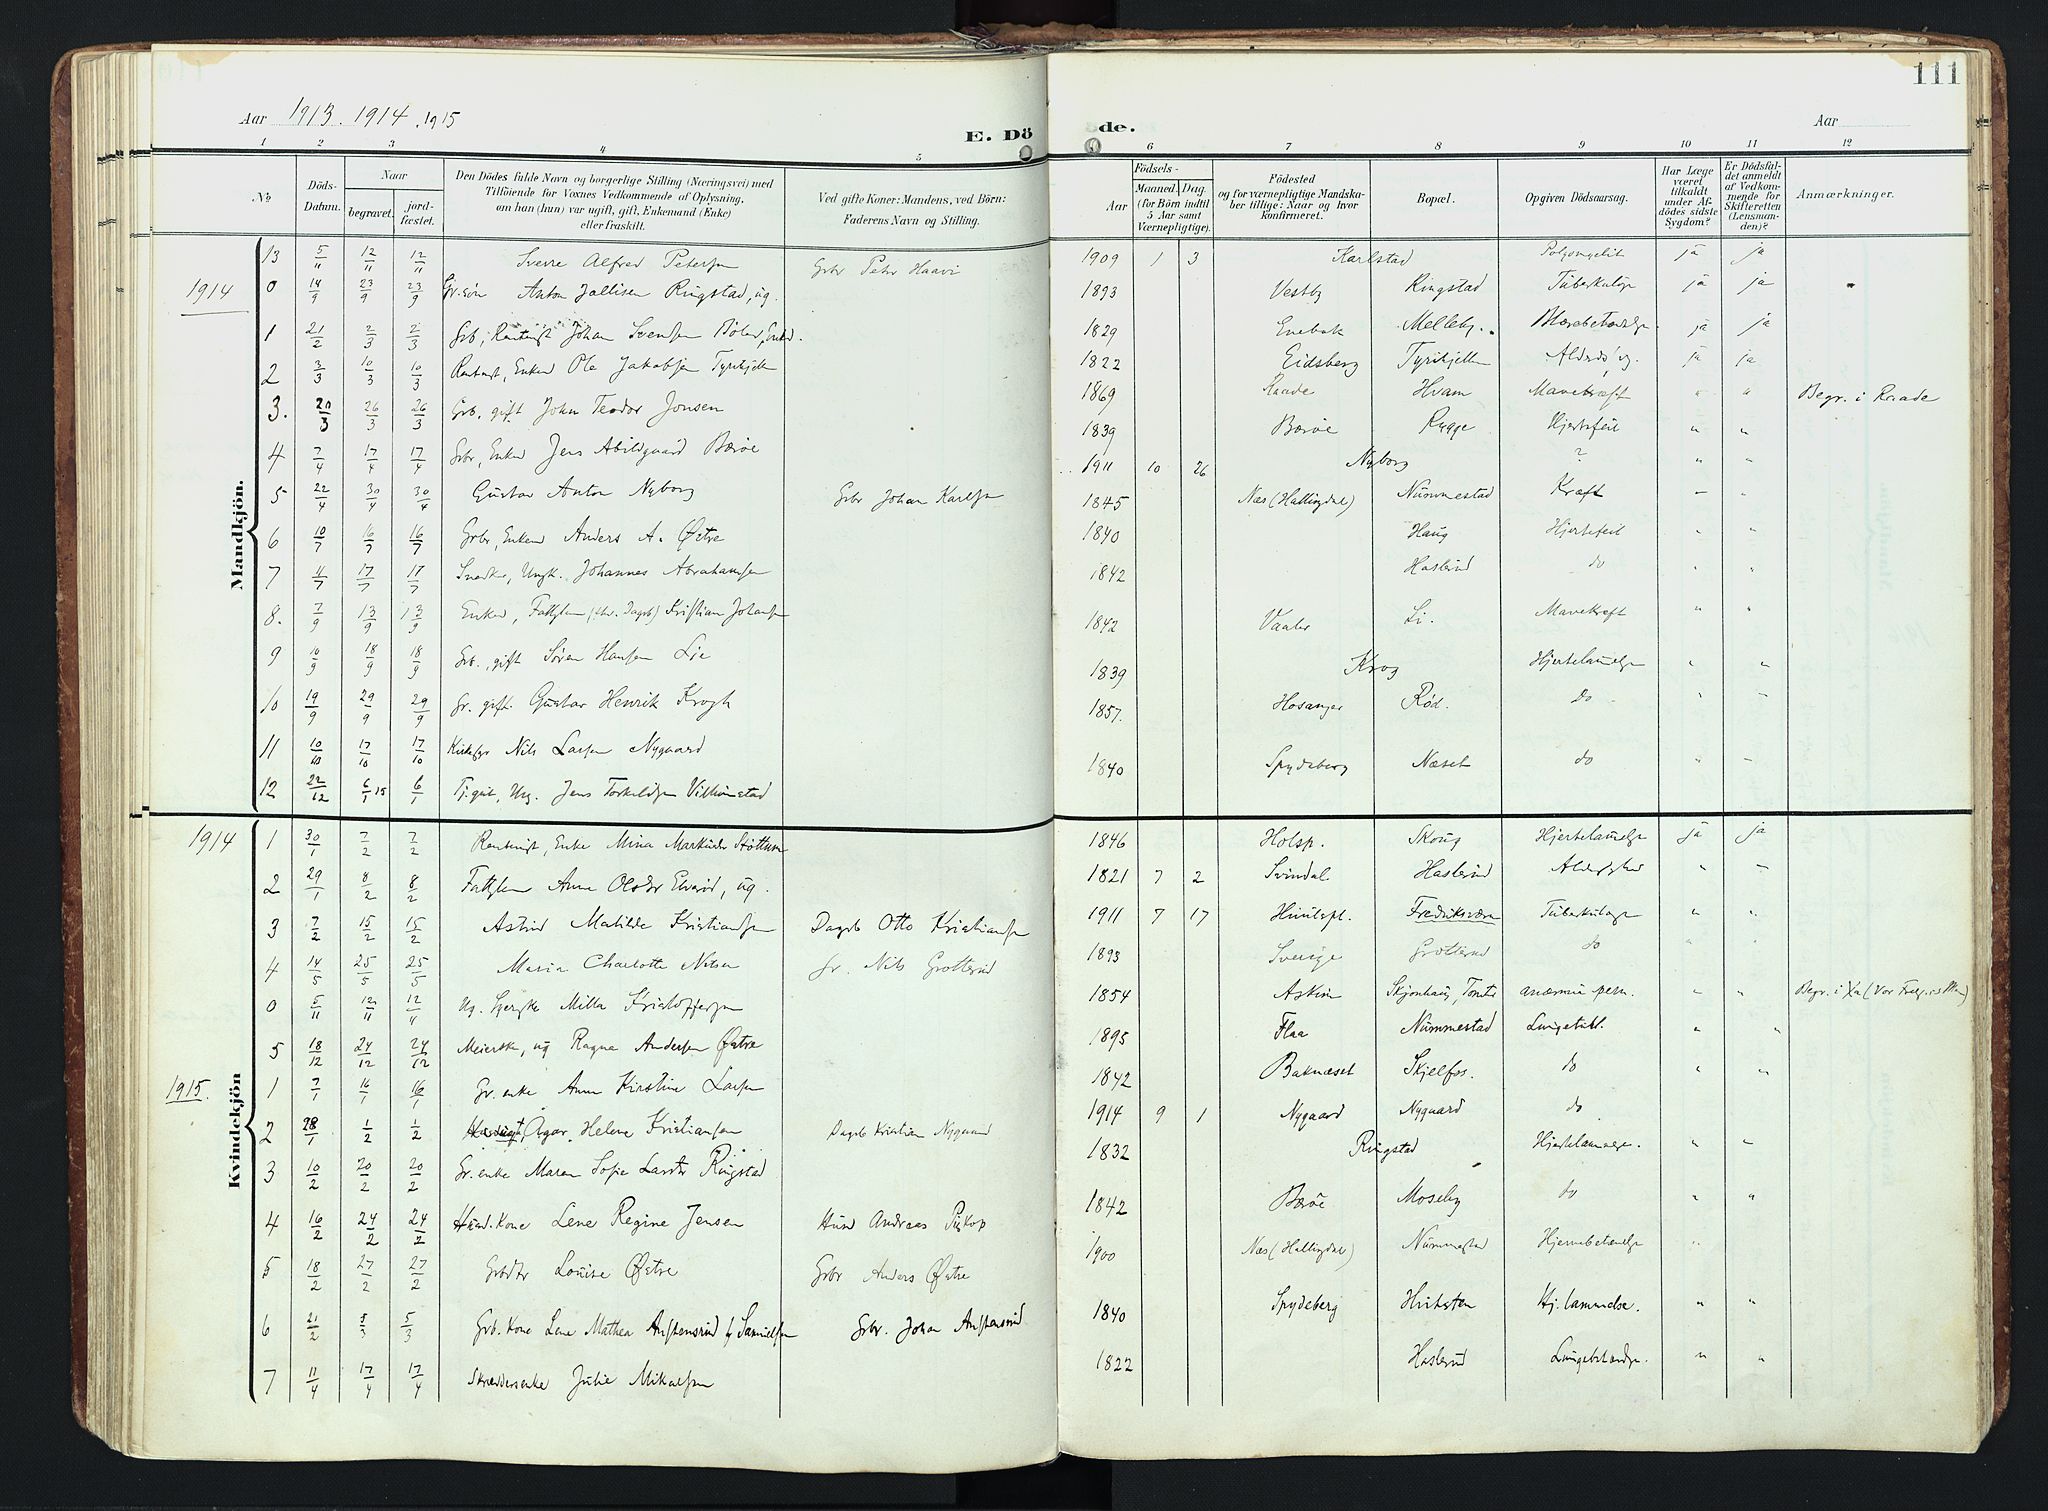 111
Aar 1913. 1914. 1915
E. Dö de.
Aar
1 2 3 4 5 6 7 8 9 10 11 12
No
Döds-Datum.
Naar begravet. jord-fæstet.
Den Dödes fulde Navn og borgerlige Stilling (Næringsvei) med Tilföiende for Voxnes Vedkommende af Oplysning, om han (hun) var ugift, gift, Enkemand (Enke) eller fraskilt.
Ved gifte Koner: Mandens, ved Börn: Faderens Navn og Stilling.
Födsels-
Aar Maaned. Dag. (for Börn indtil 5 Aar samt Værnepligtige).
Födested og for værnepligtige Mandskaber tillige: Naar og hvor konfirmeret.
Bopæl.
Opgiven Dödsaarsag.
Har Læge været tilkaldt under Afdödes sidste Sygdom?
Er Dödsfaldet anmeldt af Vedkommende for Skifteretten (Lensmanden)?
Anmærkninger.
Mandkjön.
13 5/11 12/11 12/11 Sverre Alfred Petersen Grbr Peter Haavi 1909 1 3 Karlstad ja ja
1914 0 14/9 23/9 23/9 Gr.søn Anton Ringstad, ug. 1893 Vestby Ringstad Tuberkulose ja ja
1 21/2 2/3 2/3 Grb, Johan Svendsen Enkem. 1829 Enebak Melleby. ja ja
2 3/3 10/3 10/3 Enkem Ole Jakobsen Tyrihjell 1822 Eidsberg Tyrihjell ja ja
3. 20/3 26/3 26/3 Grb. gift John Teodor Jonsen 1869 Raade Hvam Mavekræft " " Begr. i Raade
4 7/4 17/4 17/4 Grbr, Enkem Jens Abildgaard Bærøe 1839 Bærøe Rygge Hjertefeil " "
5 22/4 30/4 30/4 Gustav Anton Nyborg Grbr Johan Karlsen 1911 10 26 Nyborg ? " "
6 10/7 16/7 16/7 Grbr, Enkem Anders A. Østre 1845 Næs (Hallingdal) Nummestad Kræft – "
7 11/7 17/7 17/7 Snedker, Ungk. Johannes Abrahamsen 1840 Haug Hjertefeil " "
8. 7/9 13/9 13/9 Enkem, Fattiglem Kristian Johansen 1842 Haslerud do " "
9 10/9 18/9 18/9 Grb., gift Søren Hansen Lie 1842 Vaaler Li. Mavekræft " "
10 19/9 29/9 29/9 Gr. gift. Gustav Henrik Krogh 1839 Krog Hjertelammelse " "
11 10/10 17/10 17/10 Nils Larsen Nygaard 1857. Hosanger Rød. do " "
12 22/12 6/1 15 6/1 Tj.gut, Ung. Jens Torkildsen 1840 Spydeberg Næset do " "
Kvindekjön
1914 1 30/1 7/2 7/2 Enke Mina 1846 Holsp. Skoug Hjertelammelse ja ja
2 29/1 8/2 8/2 Fattiglem Anne Olsdr Elverød, ug. 1821 7 2 Svindal Haslerud " "
3 7/2 15/2 15/2 Astrid Matilde Kristiansen Dagarb Otto Kristiansen 1911 7 17 Fredriksværn Tuberkulose " "
4 14/5 25/5 25/5 Maria Charlotte Nilsen Gr. Nils Grotterød 1893 Sverige Grotterud do " "
0 5/11 12/11 12/4 Ug. Milla Kristoffersen 1854 Askim Skjønhaug, anæmia pern. " " Begr. i
5 18/12 24/12 24/12 Meierske, ug Ragna Andersen Østre 1895 Flaa Nummestad " "
1915. 1 7/1 16/1 16/1 Gr. enke Anne Kirstine Larsen 1842 Baknæset Skjelfos. do " "
2 28/1 1/2 1/2 Agar, Helene Kristiansen Dagarb Kristian Nygaard 1914 9 1 Nygaard Nygaard do " "
3 10/2 20/2 20/2 Gr. enke Maren Sofie Larsdtr Ringstad 1832 Ringstad " "
4 16/2 24/2 24/2 Husm. Kone Lene Regine Jensen Husm Andreas 1842 Bærøe Moseby do " "
5 18/2 27/2 27/2 Grbdtr Louise Østre Grbr Anders Østre 1900 Næs (Hallingdal) Nummestad Hjernebetændelse "
6 21/2 5/3 5/3 Grb. Kone Lene Mathea Anstensrud f. Samuelsen Grbr. Johan Anstensrud 1840 Spydeberg Hvitsten Hj. lammelse. " "
7 11/4 17/4 17/4 Skrædderenke Julie Mikalsen 1822 Haslerud Lungebetændelse. " "